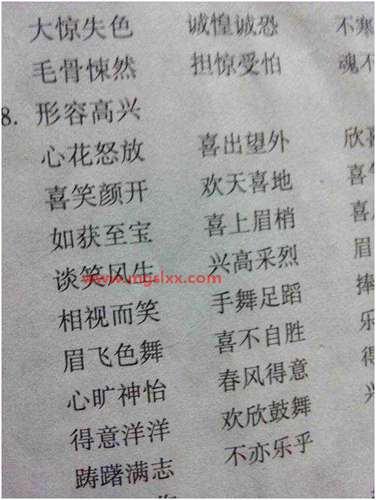 大惊失色 诚惶诚恐 不寒
毛骨悚然 担惊受怕 魂不
8. 形容高兴
心花怒放 喜出望外 欣喜
喜笑颜开 欢天喜地 喜
如获至宝 喜上眉梢 喜
谈笑风生 兴高采烈 眉
www.mgslxx.com
相视而笑 手舞足蹈 捧
眉飞色舞 喜不自胜 乐
心旷神怡 春风得意 得
得意洋洋 欢欣鼓舞
踌躇满志 不亦乐乎